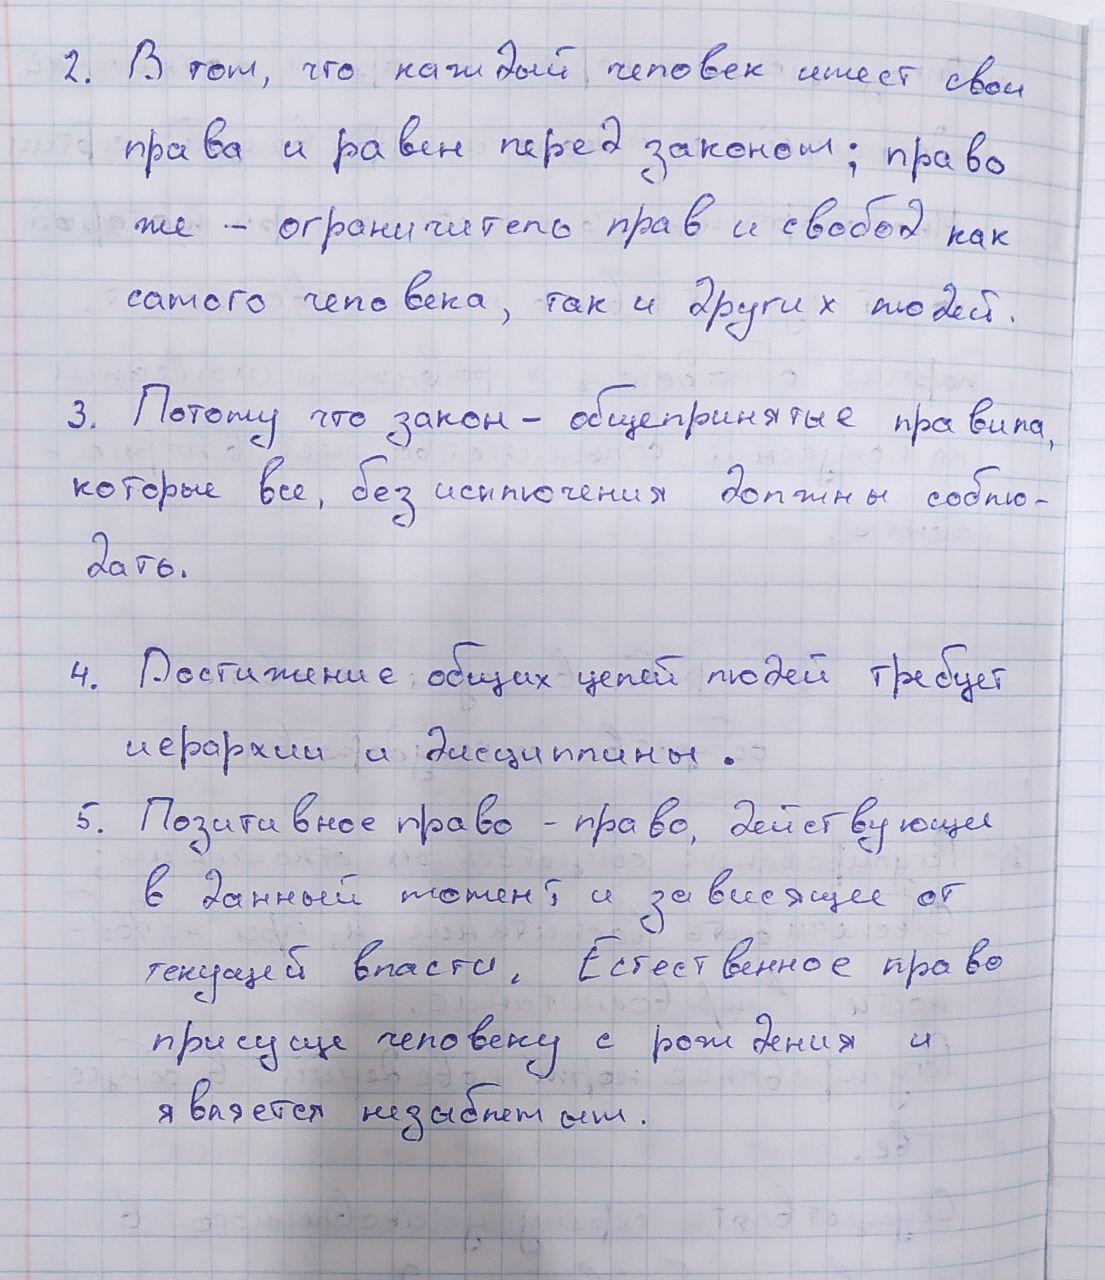 2. В том, что каждый человек имеет свои
права и равен перед законом; право
же – ограничитель прав и свобод как
самого человека, так и других людей.
3. Потому что закон – общепринятые правила,
которые все, без исключения должны соблю-
дать.
4. Достижение общих целей людей требует
иерархии и дисциплины.
5. Позитивное право – право, действующее
в данный момент и зависящее от
текущей власти. Естественное право
присуще человеку с рождения и
является незыблемым.